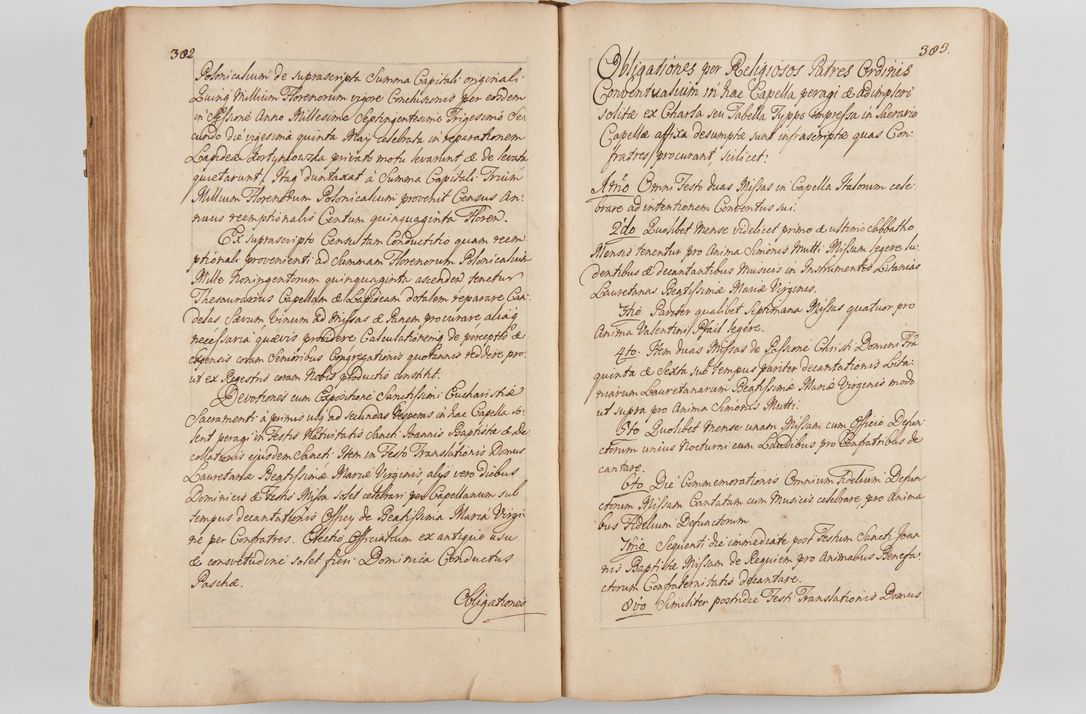 302
Polonicalium de suprascripta Summa Capitali originali
Quinq Millium Florenorum vigore Conclusionis per eosdem
in Sessione Anno Millesimo Septingentesimo Trigesimo Se-
cundo die vigesima quinta Maij celebrata in reparationem
Lapideæ privato motu levarunt & de levata
quietarunt, Itaq duntaxat à Summa Capitali Trium
Millium Florenorum Polonicalium provenit Census An-
nuus reemptionalis Centum quinquaginta Floren.
Ex suprascripto Censu tam Conductitio quam reem
ptionali provenienti ad Summam Florenorum Polonicalium
Mille Noningentorum quinquaginta ascenden tenetur
Thesaurarius Capellam & Lapideam dotalem reparare Can-
delas Sævum Vinum ad Missas & Panem procurare aliaq
necessaria quævis providere Calculationemq de perceptis &
expensis coram Senioribus Congregationis quotannis reddere pro-
ut ex Regestris coram Nobis productis constitit.
Devotiones cum Expositione Sanctissimi Eucharistiæ
Sacramenti à primis usq ad secundas Vesperas in hac Capella so-
lent peragi in Festis Nativitatis Sancti Joannis Baptistæ & De-
collationis ejusdem Sancti. Item in Festo Translationis Domus
Lauretanæ Beatissimæ Mariæ Virginis, alijs vero diebus
Dominicis & Festis Missa solet celebrari per Capellanum sub
tempus decantationis Officij de Beatissima Maria Virgi-
ne per Confratres. Electio Officialium ex antiquo usu
& consvetudine solet fieri Dominica Conductus
Paschæ.
Obligationes
303.
Obligationes per Religiosos Patres Ordinis
Conventualium in hac Capella peragi & adimpleri
solitæ ex Charta seu Tabella Typpo impressa in Sacrario
Capellæ affixa desumptæ sunt infrascriptæ quas Con-
fratres procurant scilicet:
A 1mo Omni Festo duas Missas in Capella Italorum cele-
brare ad intentionem Conventus sui.
2do Quolibet Mense videlicet primo & ultimo Sabbatho
Mensis tenentur pro Anima Simonis Mutti Missam legere lu-
dentibus & decantantibus Musicis in Instrumentis Litanias
Lauretanas Beatissimæ Mariæ Virginis.
3tio Pariter qualibet Septimana Missas quatuor pro
Anima Valentini legere.
4to Item duas Missas de Passione Christi Domini Fra
quinta & Sexta sub tempus pariter decantationis Lita-
niarum Lauretanarum Beatissimæ Mariæ Virginis modo
ut supra pro Anima Simonis Mutti.
5to Quolibet Mense unam Missam cum Officio Defun-
ctorum unius Nocturni cum Laudibus pro Confratribus de
cantare.
6to Die Commemorationis Omnium Fidelium Defun
ctorum Missam Cantatam cum Musicis celebrare pro Anima
bus Fidelium Defunctorum
7mo Sequenti die immediate post Festum Sancti Joan
nis Baptistæ Missam de Requiem pro Animabus Benefa-
ctorum Confraternitatis decantare.
8vo Similiter postridie Festi Translationis Domus